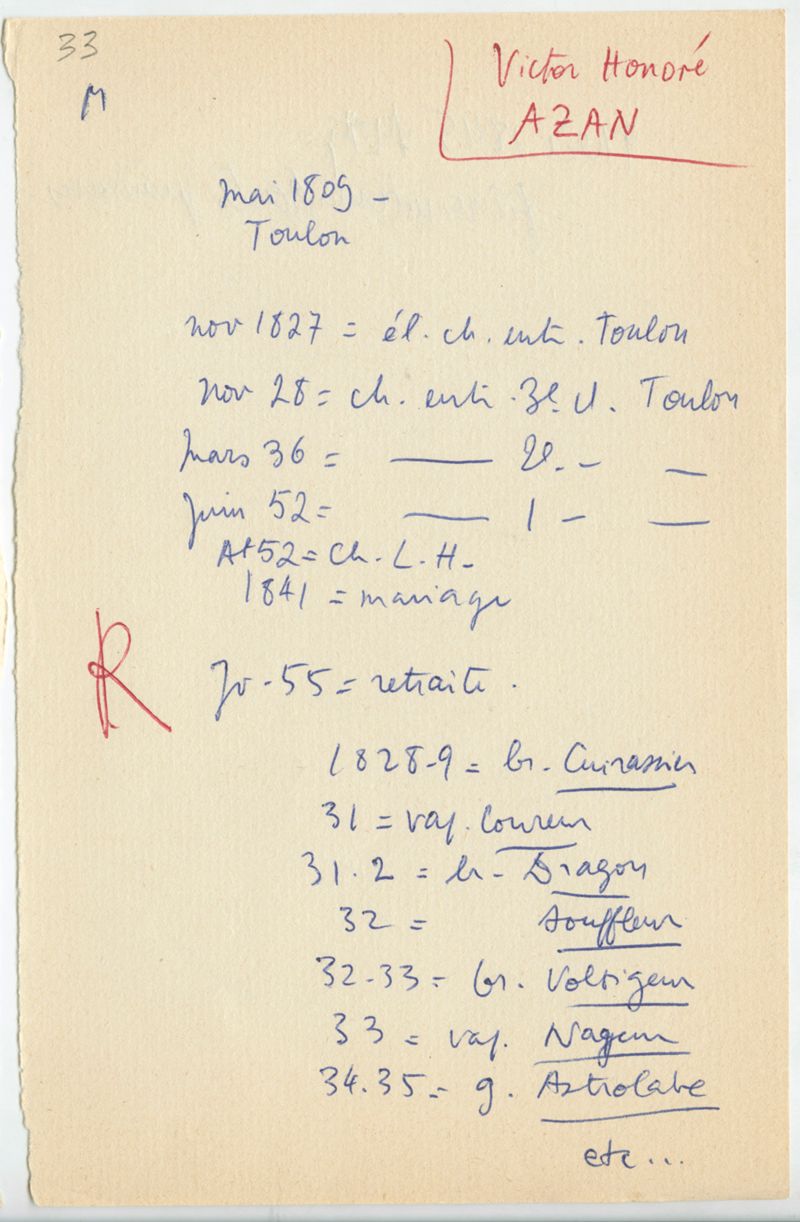 33
M
Victor Honoré
AZAN
mai 1809 -
Toulon
nov 1827 = él. ch. enti. Toulon
nov 28 = ch. enti. 3e. cl. Toulon
mars 36 = —— 2e. - —
Juin 52 = —— 1 - —
At 52 = Ch. L. H.
1841 = mariage
R
Jv - 55 = retraite.
1828-9 = br. Cuirassier
31 = vap. Coureur
31.2 = br - Dragon
32 = Souffleur
32-33 = br. Voltigeur
33 = vap. Nageur
34.35 = g. Astrolabe
etc...